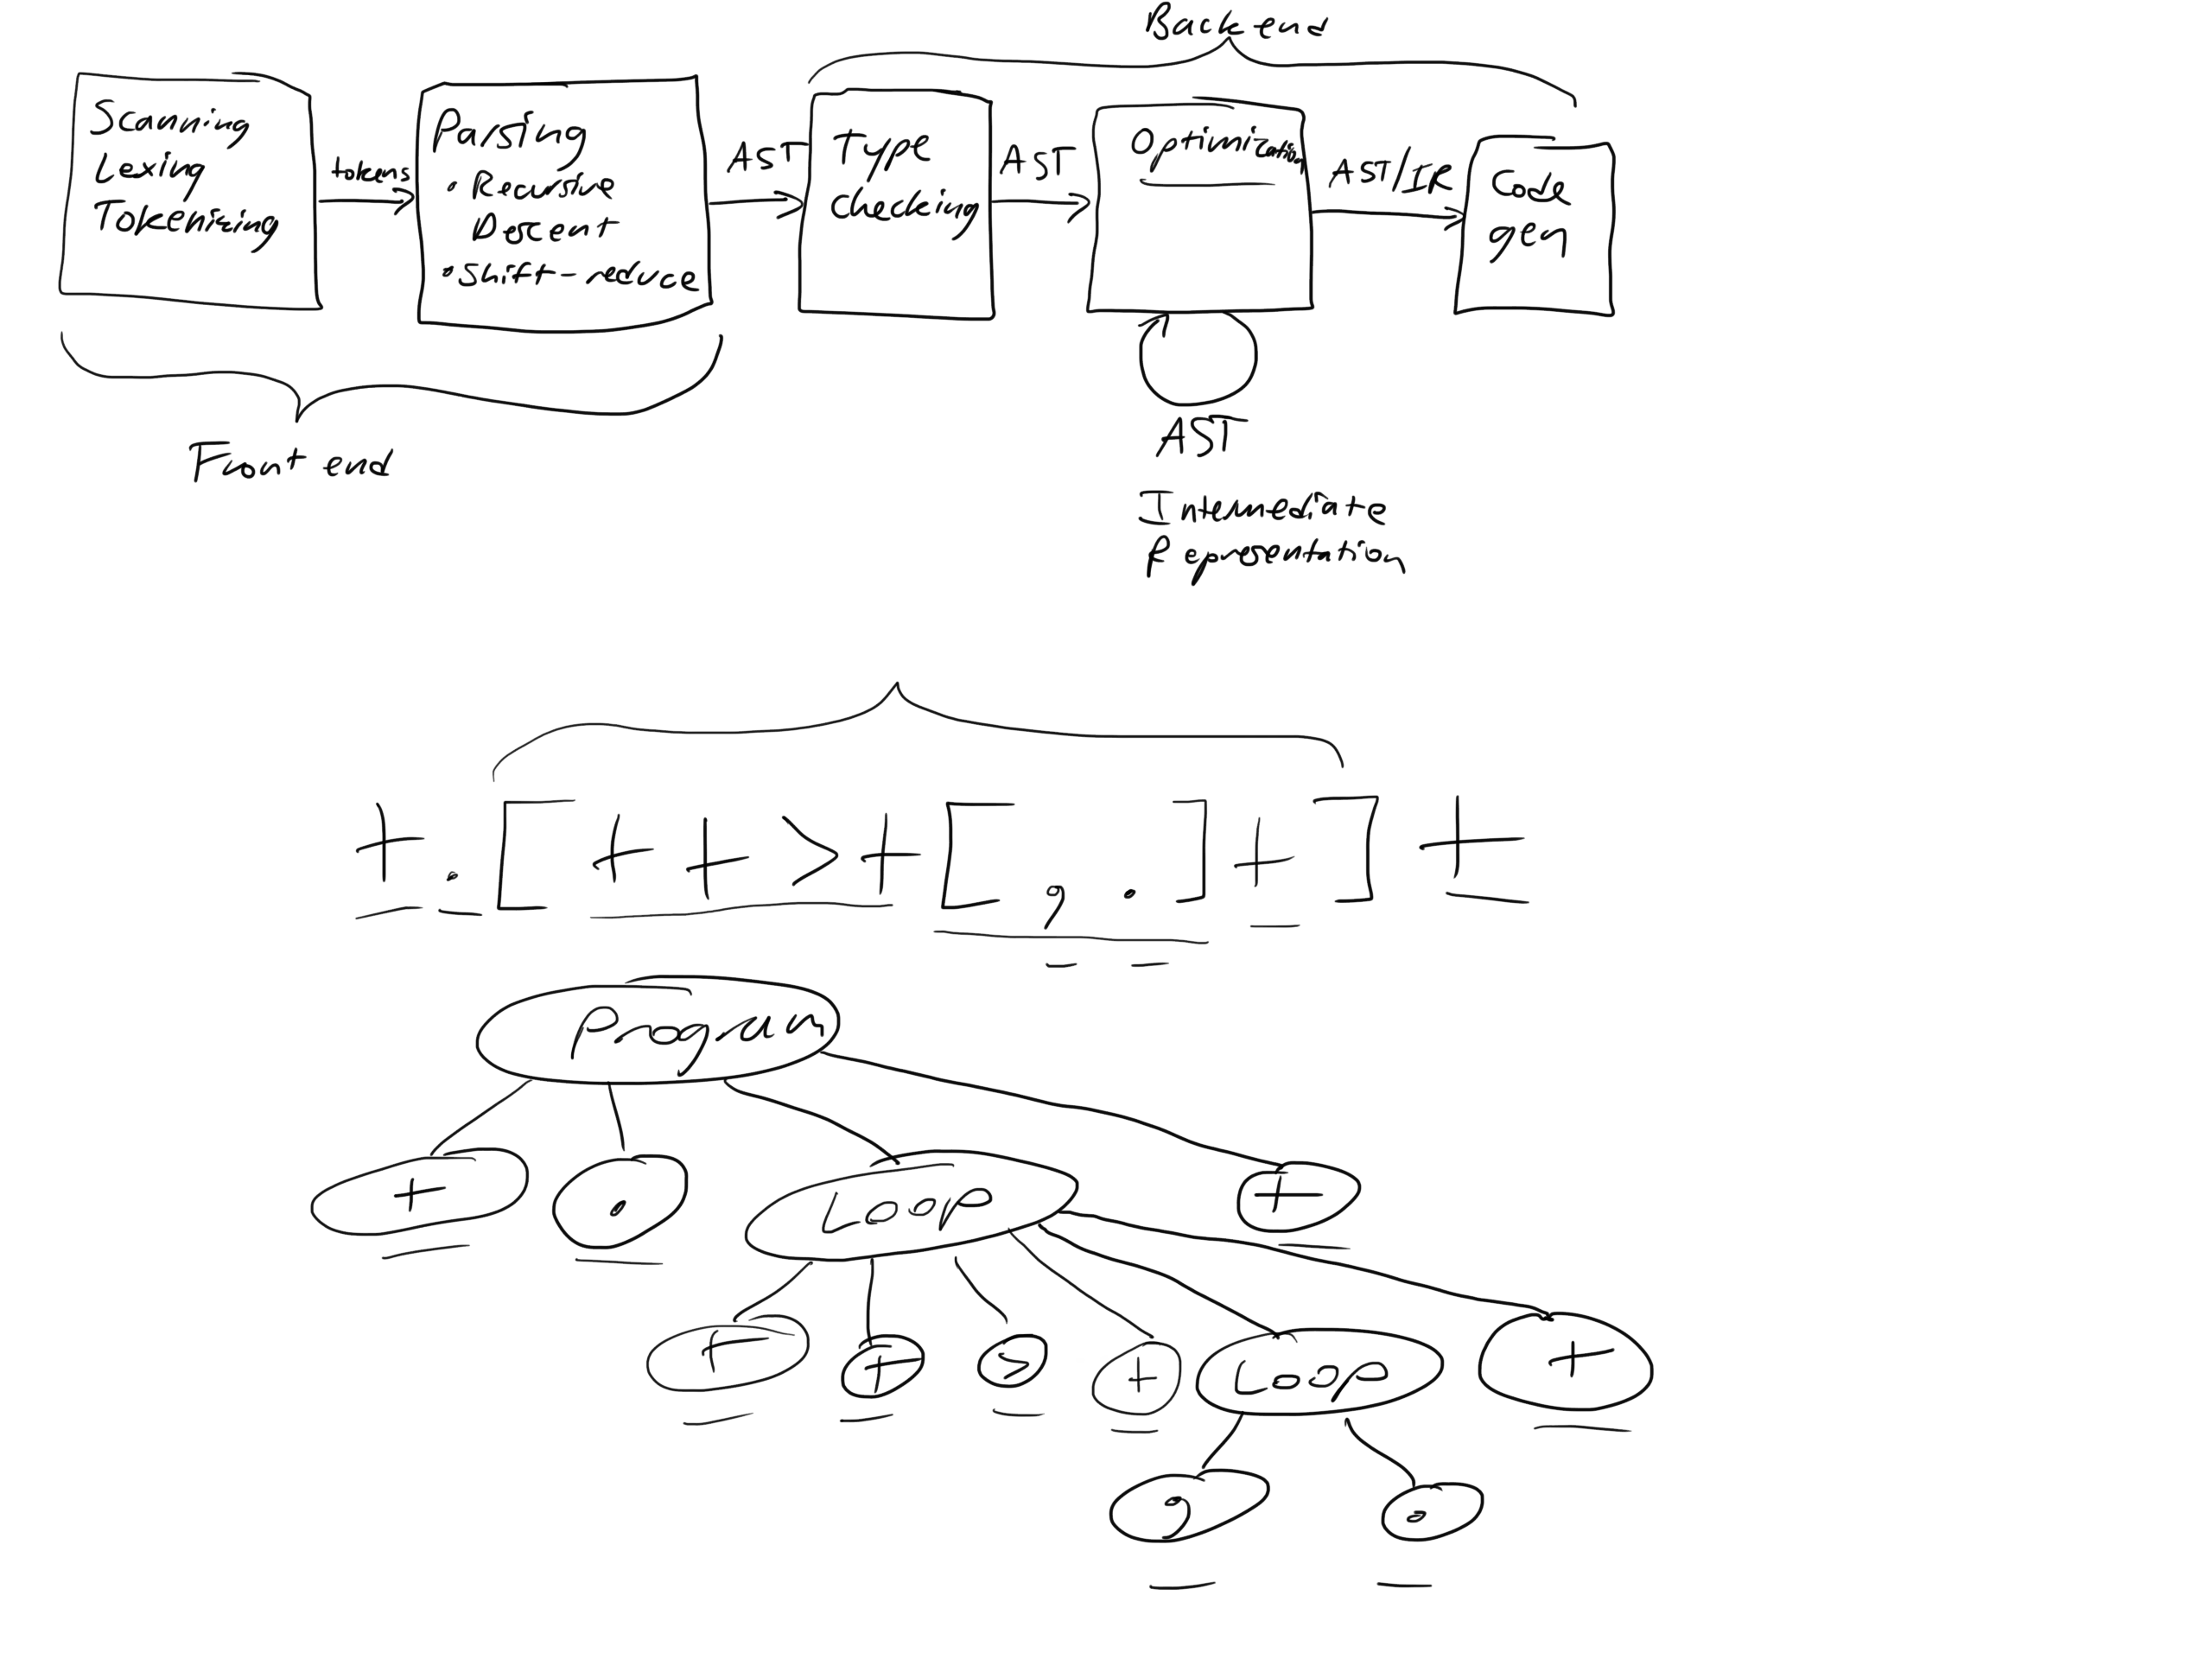 Backend
Scanning
Lexing
Tokenizing
tokens
Parsing
• Recursive
Descent
• Shift-reduce
AST
Type
checking
AST
Optimization
AST/IR
Code
gen
Front end
AST
Intermediate
Representation
+ . [ + + > + [ , . ] + ] +
Program
+ . Loop +
+ + > + Loop +
, .